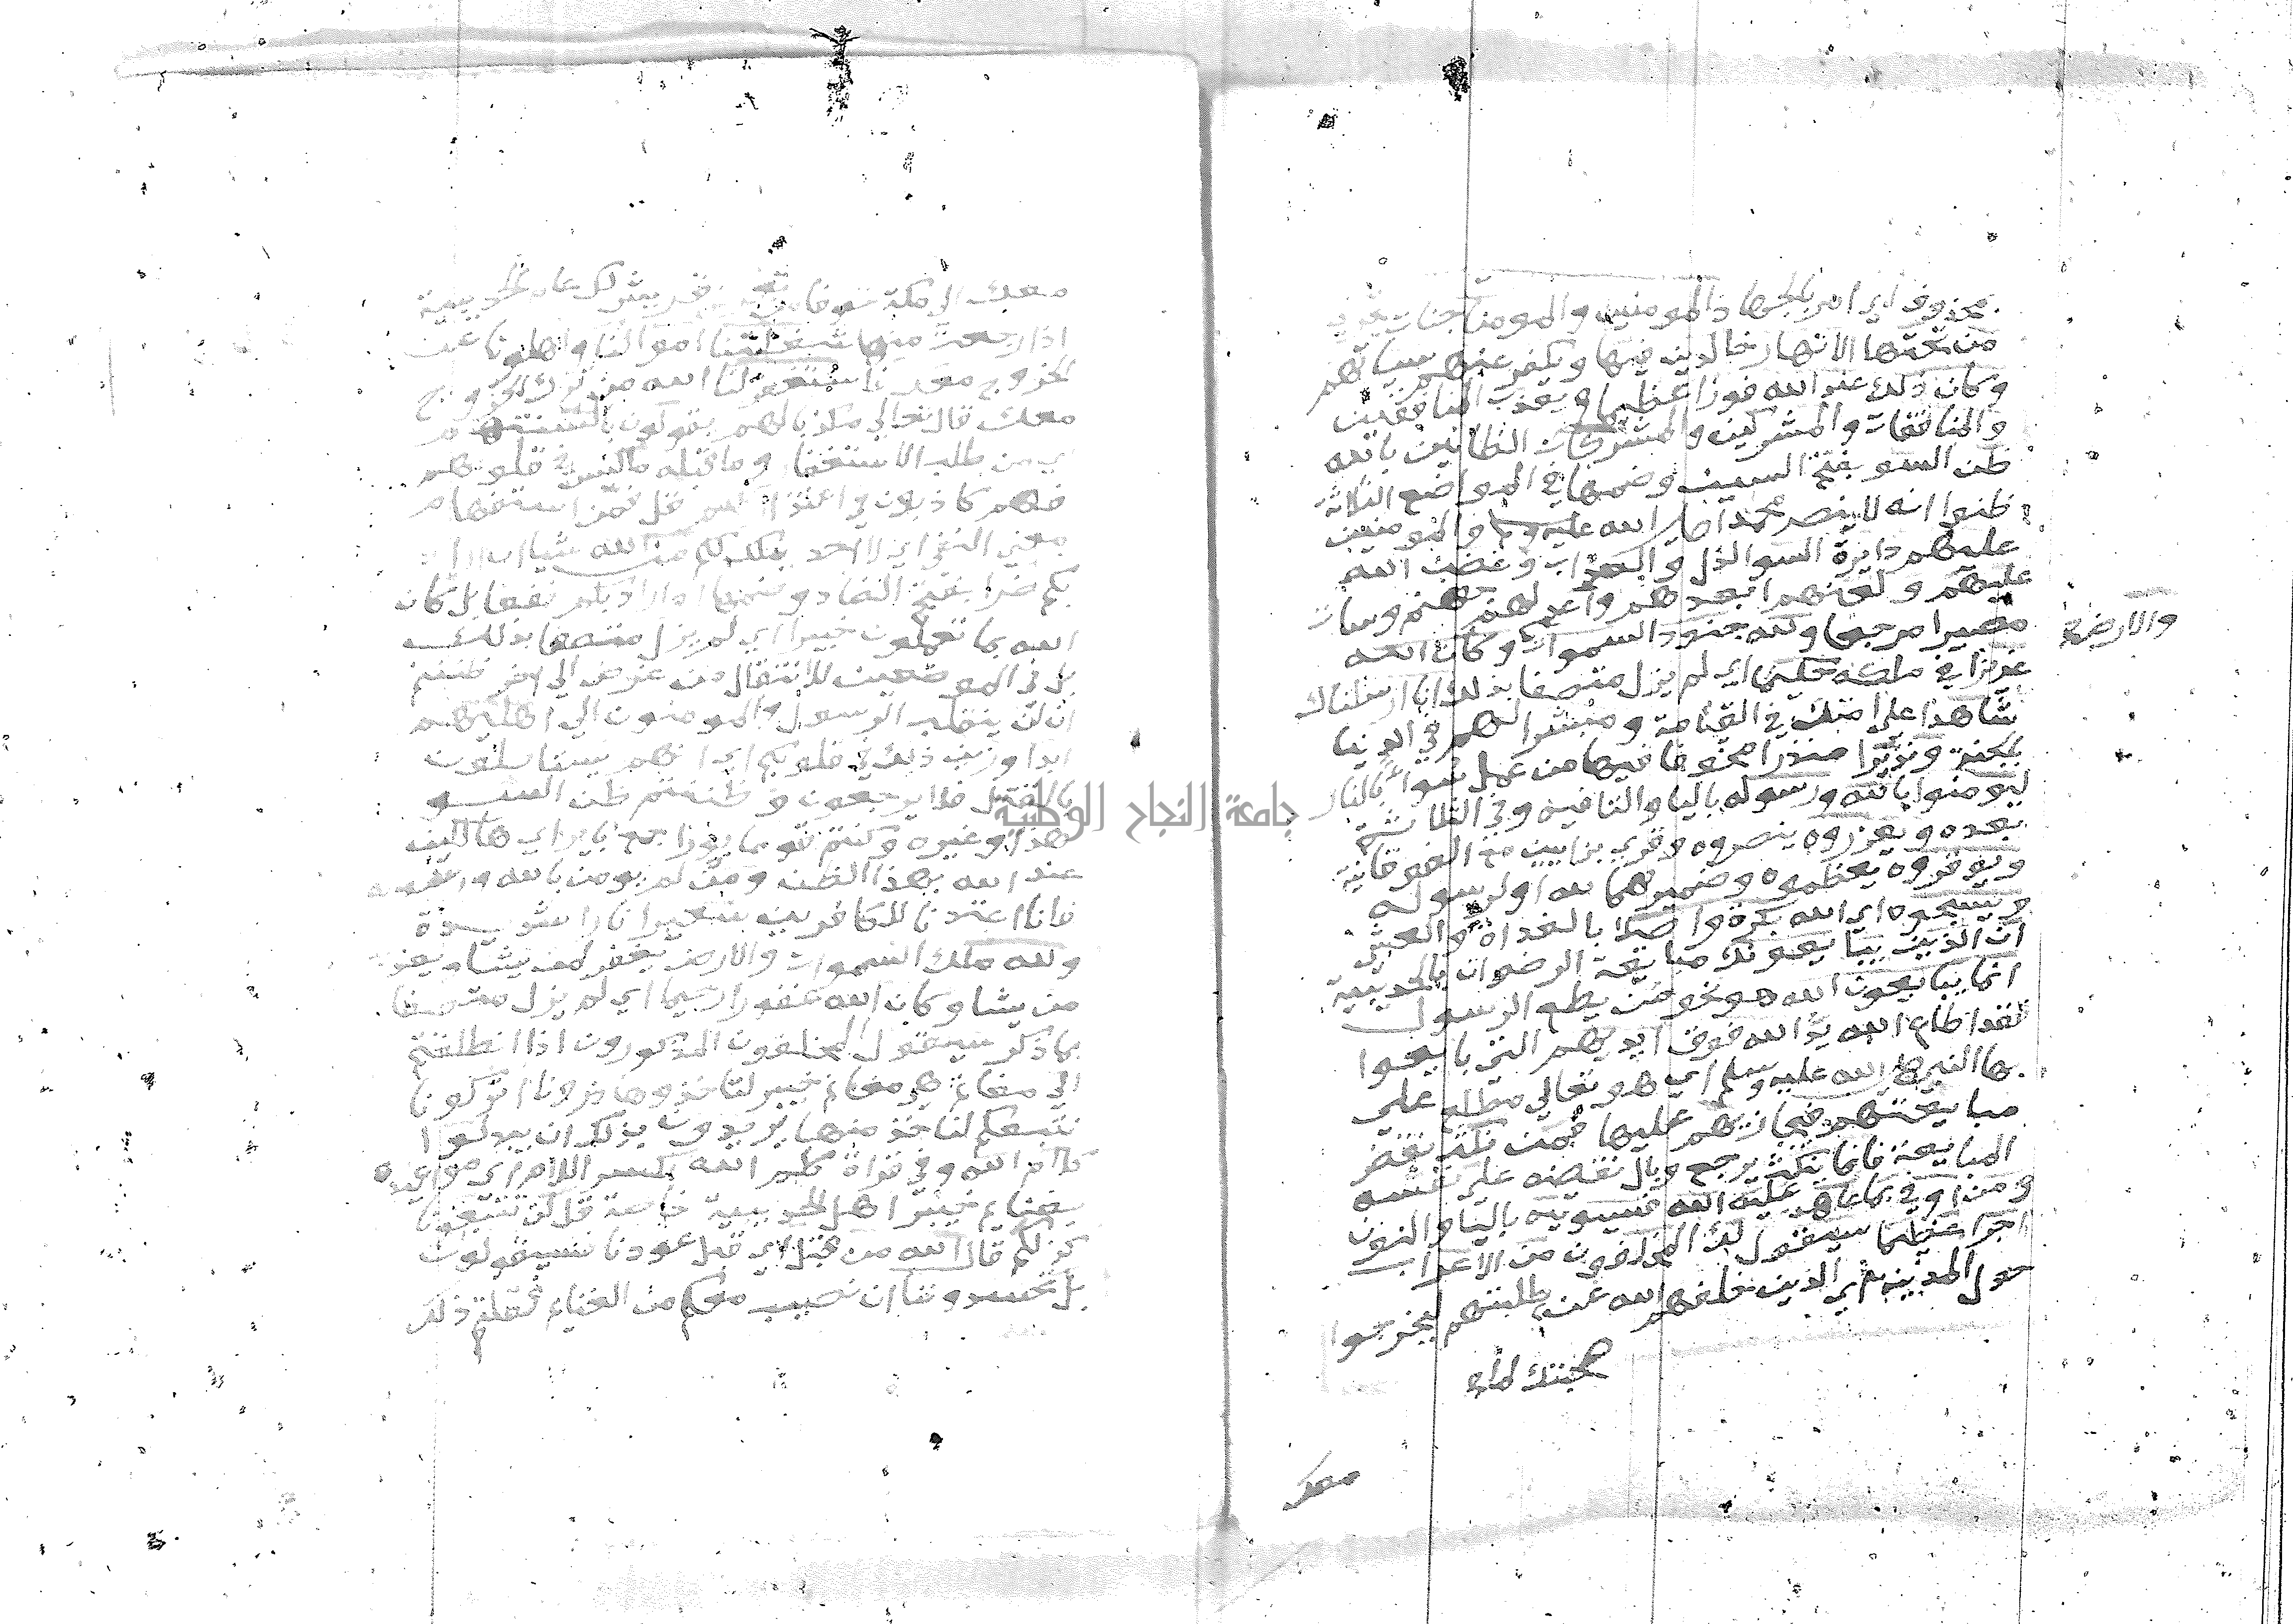 محذوف اي امر بالجهاد المومنين والمومنات جنات تجري
من تحتها الانهار خالدين فيها ويكفر عنهم سياتهم
وكان ذلك عند الله فوزا عظيما ويعذب المنافقين
والمنافقات والمشركين والمشركات الظانين بالله
ظن السو بفتح السين وضمها في المواضع الثلاثة
ظنوا انه لا ينصر محمدا صلى الله عليه وسلم والمومنين
عليهم دايرة السو الذل والعذاب وغضب الله
عليهم ولعنهم ابعدهم واعد لهم جهنم وسات
مصيرا مرجعا ولله جنود السموات وكان الله
والارض
عزيزا في ملكه حكيما اي لم يزل متصفا بذلك انا ارسلناك
شاهدا على امتك في القيامة ومبشرا لهم في الدنيا
بالجنة ونذيرا منذرا مخوفا فيها من عمل سوا بالنار
ليومنوا بالله ورسوله باليا والتا فيه وفي الثلاثة
بعده ويعزروه ينصروه وقري بزايين مع الفوقانية
ويوقروه يعظموه وضميرهما لله او لرسوله
ويسبحوه اي الله بكرة واصيلا بالغداة والعشي
ان الذين يبايعونك مبايعة الرضوان بالحديبية
انما يبايعون الله هو نحو من يطع الرسول
فقد اطاع الله يد الله فوق ايديهم التي بايعوا
بها النبي صلى الله عليه وسلم اي هو تعالي مطلع علي
مبايعتهم فيجازيهم عليها فمن نكث نقض
المبايعة فانما ينكث يرجع وبال نقضه علي نفسه
ومن اوفي بما عاهد عليه الله فسيوتيه باليا والنون
اجرا عظيما سيقول لك المخلفون من الاعراب
حول المدينة اي الذين خلفهم الله عن طلبتهم ليخرجوا
صحبتك لما
معك
معك الي مكة خوفا من تعرض قريش لك عام الحديبية
اذا رجعت منها شغلتنا اموالنا واهلونا عن
الخروج معك فاستغفر لنا الله من ترك الخروج
معك قال تعالي مكذبا لهم يقولون بالسنتهم
اي من طلب الاستغفار وما قبله ما ليس في قلوبهم
فهم كاذبون في اعتذارهم قل فمن استفهام
بمعني النفي اي لا احد يملك لكم من الله شيا ان اراد
بكم ضرا بفتح الضاد وضمها او اراد بكم نفعا بل كان
الله بما تعملون خبيرا اي لم يزل متصفا بذلك
بل في الموضعين للانتقال من غرض الي اخر ظننتم
ان لن ينقلب الرسول والمومنون الي اهليهم
ابدا وزين ذلك في قلوبكم اي انهم يستاصلون
بالقتل فلا يرجعون وظننتم ظن السو
هذا وغيره وكنتم قوما بورا جمع باير اي هالكين
عند الله بهذا الظن ومن لم يومن بالله ورسوله
فانا اعتدنا للكافرين سعيرا نارا شديدة
ولله ملك السموات والارض يغفر لمن يشا ويعذب
من يشا وكان الله غفورا رحيما اي لم يزل متصفا
بما ذكر سيقول المخلفون المذكورون اذا انطلقتم
الي مغانم هي مغانم خيبر لتاخذوها ذرونا اتركونا
نتبعكم لناخذ منها يريدون بذلك ان يبدلوا
كلام الله وفي قراة كلم الله بكسر اللام اي مواعيده
بغنايم خيبر اهل الحديبية خاصة قل لن تتبعونا
كذلكم قال الله من قبل اي قبل عودنا فسيقولون
بل تحسدوننا ان نصيب معكم من الغنايم فقلتم ذلك
جامعة النجاح الوطنية